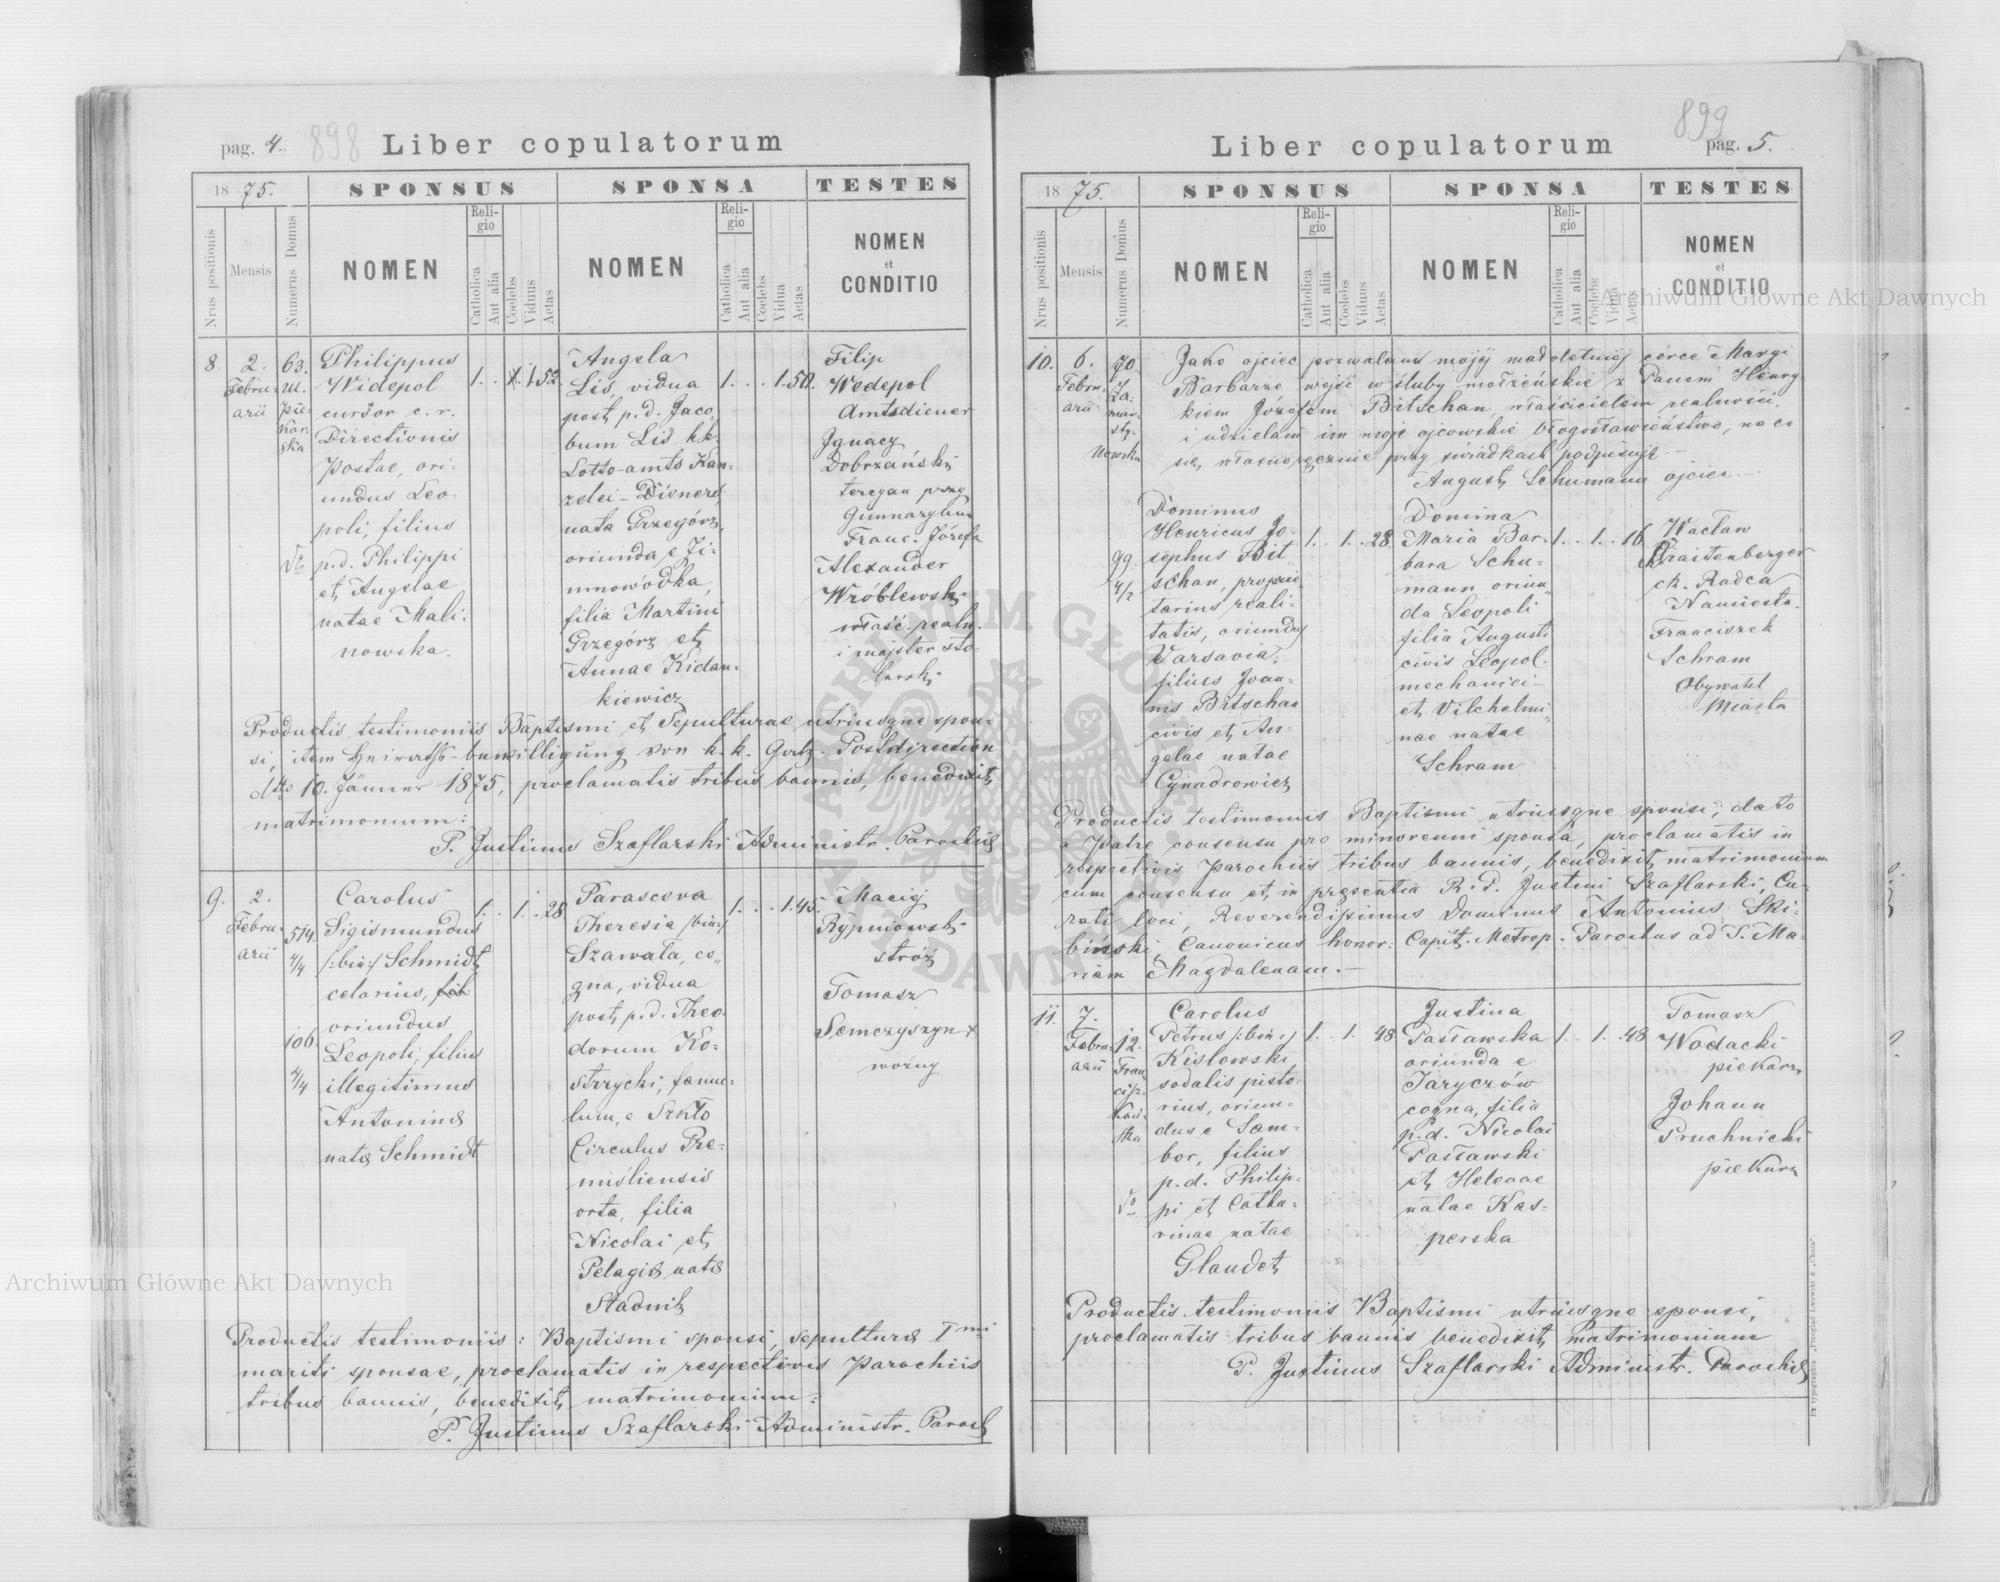 pag. 4. 898 Liber copulatorum
18 75. SPONSUS SPONSA TESTES
Nrus positionis Mensis Numerus Domus NOMEN Religio Catholica Aut alia Coelebs Viduus Aetas NOMEN Religio Catholica Aut alia Coelebs Vidua Aetas NOMEN et CONDITIO
8. 2. Februarii 63. ul. Piekarska
Philippus
Widepol
cursor c. r.
Directionis
Postae, ori-
undus Leo-
poli, filius
p. d. Philippi
et Angelae
natae Mali-
nowska.
1. 1 52
Angela
Lis, vidua
post p. d. Jaco
bum Lis k k.
Lotto-amts Kan-
zelei-Dieners,
nata Grzegórz,
oriunda e Zi-
mnowódka,
filia Martini
Grzegórz et
Annae Kidan-
kiewicz
1. 1. 50.
Filip
Wedepol
Amtsdiener
Ignacy
Dobrzański
tercyan przy
Gimnazyum
Franc. Józefa
Alexander
Wróblewski
właść. realn.
i majster sto-
larski
Productis testimoniis Baptismi et Sepulturae utriusque spon-
si, item Heiraths-bewilligung von k. k. Galz. Postdirection
dto 10. Jänner 1875, proclamatis tribus bannis, benedixit
matrimonium:
P. Justinus Szaflarski Administr. Parochiæ
9. 2. Februarii 514. 4/4 106. 4/4
Carolus
Sigismundus
/:bin:/ Schmidt
celarius, fil
oriundus
Leopoli, filius
illegitimus
Antoninæ
natæ Schmidt
1. 1. 28
Parasceva
Theresia /bin:/
Szawała, co-
gna, vidua
post p. d. Theo
dorum Ko-
strzycki, famu-
lum, e Szkło
Circulus Pre-
misliensis
orta, filia
Nicolai et
Pelagiæ natæ
Stadnik
1. 1. 45.
Maciej
Rypniowski
stróż
Tomasz
Semczyszyn x
woźny
Productis testimoniis: Baptismi sponsi, sepulturæ Imi
mariti sponsae, proclamatis in respectivis Parochiis
tribus bannis, benedixit matrimonium:
P. Justinus Szaflarski Administr. Paroch
899
Liber copulatorum pag. 5.
18 75. SPONSUS SPONSA TESTES
Nrus positionis Mensis Numerus Domus NOMEN Religio Catholica Aut alia Coelebs Viduus Aetas NOMEN Religio Catholica Aut alia Coelebs Vidua Aetas NOMEN et CONDITIO
10. 6. Februarii 70 Zamarstynowska
Jako ojciec pozwalam mojéj małoletniéj córce Maryi
Barbarze wejść w śluby małżeńskie z Panem Henry
kiem Józefem Bitschan, właścicielem realności,
i udzielam im moje ojcowskie błogosławieństwo, na co
się własnoręcznie przy świadkach podpisuję.—
August Schumann ojciec—
99. 4/2
Dominus
Henricus Jo-
sephus Bit
schan, proprie-
tarius reali-
tatis, oriundus
Varsavia,
filius Joan-
nis Bitschan
civis et An-
gelae natae
Cynadrowicz
1. 1. 28
Domina
Maria Bar-
bara Schu-
mann oriun-
da Leopoli
filia Augusti
civis Leopol.
mechanici—
et Vilchelmi-
nae natae
Schram
1. 1. 16
Wacław
Braitenberger
ck. Radca
Namiestn.
Franciszek
Schram
Obywatel
Miasta
Productis testimoniis Baptismi utriusque sponsi; dato
a Patre consensu pro minorenni sponsa, proclamatis in
respectivis Parochiis tribus bannis, benedixit matrimonium
cum consensu et in præsentia R. D. Justini Szaflarski, Cu-
rati loci, Reverendissimus Dominus Antonius Ski-
biński, Canonicus honor: Capit. Metrop. Parochus ad S. Ma-
riam Magdalenam.—
11. 7. Februarii 12. Franciszkańska
Carolus
Petrus /:bin:/
Kislowski
sodalis pisto-
rius, oriun-
dus e Sam-
bor, filius
p. d. Philip-
pi et Catha-
rinae natae
Glaudet
1. 1. 48
Justina
Pasławska
oriunda e
Jaryczów
cogna, filia
p. d. Nicolai
Pasławski
et Helenae
natae Kas-
perska
1. 1. 48
Tomasz
Wodacki
piekarz
Johann
Pruchnicki
piekarz
Productis testimoniis Baptismi utriusque sponsi,
proclamatis tribus bannis benedixit matrimonium
P. Justinus Szaflarski Administr. Parochiæ
Archiwum Główne Akt Dawnych
Archiwum Główne Akt Dawnych
ARCHIWUM GŁÓWNE AKT DAWNYCH